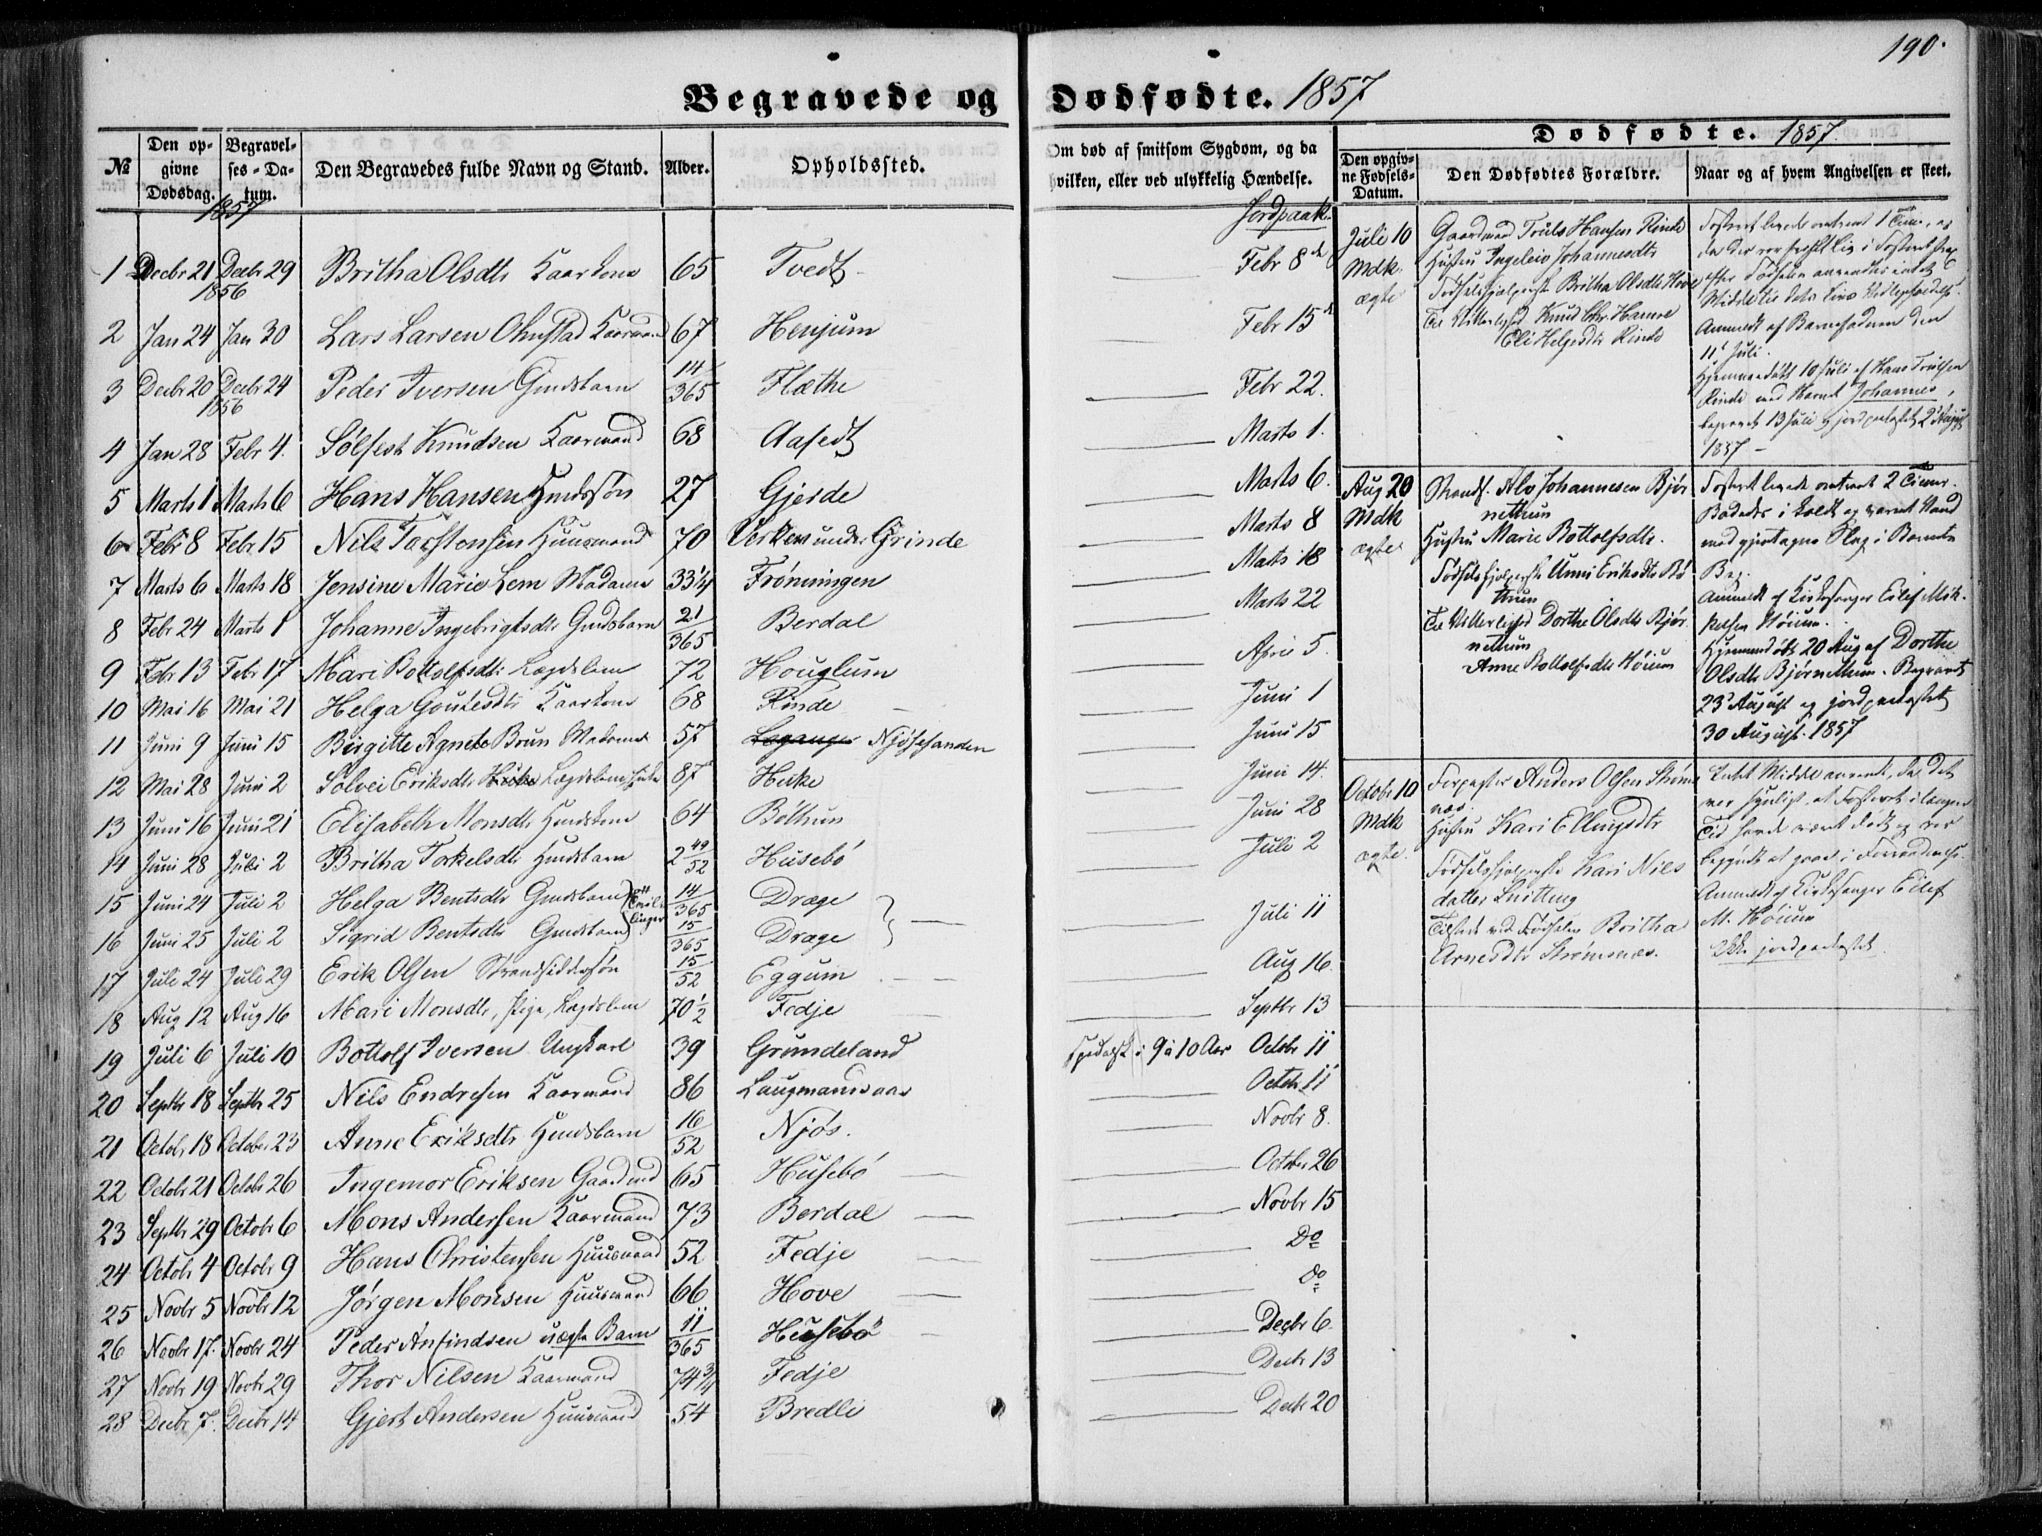 190.
Begravede og Dødfødte. 1857
№ Den opgivne Dødsdag. Begravelses-Datum. Den Begravedes fulde Navn og Stand. Alder. Opholdssted.
Om død af smitsom Sygdom, og da hvilken, eller ved ulykkelig Hændelse.
1857
Jordpaak.
1 Decbr 21 Decbr 29 Britha Olsdtr Kaarkone 65 Tvedt Febr 8de
1856
2 Jan 24 Jan 30 Lars Larsen Ohnstad Kaarmand 67 Henjum Febr 15
3 Decbr 20 Decbr 24 Peder Iversen Gmdsbarn 14/365 Flæthe Febr 22.
1856
4 Jan 28 Febr 4. Sølfest Knudsen Kaarmand 68 Aafedt Marts 1.
5 Marts 1 Marts 6 Hans Hansen Hmdssøn 27 Gjerde Marts 6.
6 Febr 8 Febr 15 Nils Torstensen Huusmand 70 under Grinde Marts 8
7 Marts 6 Marts 18 Jensine Marie Lem Madame 33 1/4 Frønningen Marts 18
8 Febr 24 Marts 1 Johanne Ingebrigtsdtr Gmdsbarn 21/365 Berdal Marts 22
9 Febr 13 Febr 17 Mari Bottolfsdtr Lægdslem 72 Houglum April 5.
10 Mai 16 Mai 21 Helga Goutesdtr Kaarkone 68 Rinde Juni 1
11 Juni 9 Juni 15 Birgitte Agnete Brun Madame 57 Leganger Njøsesanden Juni 15
12 Mai 28 Juni 2 Sølvei Eriksdtr Huke Lægdslem 87 Huke Juni 14.
13 Juni 16 Juni 21 Elisabeth Monsdtr Hmdskone 64 Bøthun Juni 28
14 Juni 28 Juli 2 Britha Torkelsdtr Hmdsbarn 2 49/52 Husebø Juli 2
15 Juni 24 Juli 2 Helga Bentsdtr Gmdsbarn Tvillinger 14/365 Drage
16 Juni 25 Juli 2 Sigrid Bentsdtr Gmdsbarn 15/365 Drage Juli 11
17 Juli 24 Juli 29 Erik Olsen Strandsiddersøn 15/52 Eggum Aug 16.
18 Aug 12 Aug 16 Mari Monsdtr, Pige, Lægdslem 70 1/2 Fedje Septbr 13
19 Juli 6 Juli 10 Bottolf Iversen Ungkarl 39 Grundeland Spedalsk i 9 à 10 Aar Octobr 11
20 Septbr 18 Septbr 25 Nils Endresen Kaarmand 86 Octobr 11
21 Octobr 18 October 23 Anne Eriksdtr Hmdsbarn 16/52 Njøs. Novbr 8.
22 Octobr 21 Octobr 26 Ingemor Eriksen Gaardmd 65 Husebø October 26
23 Septbr 29 Octobr 6 Mons Andersen Kaarmand 73 Berdal Novbr 15
24 Octobr 4 Octobr 9 Hans Christensen Huusmand 52 Fedje Do
25 Novbr 5 Novbr 12 Jørgen Monsen Huusmand 66 Hove do
26 Novbr 17. Novbr 24 Peder Anfindsen uægte Barn 11/365 Husebø Decbr 6.
27 Novbr 19 Novbr 29 Thor Nilsen Kaarmand 74 3/4 Fedje Decbr 13
28 Decbr 7. Decbr 14 Gjert Andersen Huusmand 54 Bredli Decbr 20
Dødfødte. 1857.
Den opgivne Fødsels-Datum. Den Dødfødtes Forældre. Naar og af hvem Angivelsen er skeet.
Juli 10
Mdk.
ægte
Gaardmand Truls Hansen Rinde
Hustru Ingeleiv Johannesdtr
Fødselshjælperske Britha Olsdtr Hove
Til Vitterlighed Knud Chr. Hamre
Eli Helgesdtr Rinde
Fosteret levede omtrent 1 Time, og
da der var
efter Fødselen anvendtes intet
Middel til dets Livs Vedligeholdelse.
Anmeldt af Barnefaderen den
11 Juli.
Hjemmedøbt 10 Juli af Hans Trulsen
Rinde med Navnet Johannes,
begravet 13 Juli, jordpaakastet 2 August
1857 –
Aug 20
Mdk
ægte
Strands. Alv Johannesen Bjør
nethun
Hustru Marie Bottolfsdtr.
Fødselshjælperske Anni Eriksdtr Bø
thun
Til Vitterlighed Dorthe Olsdtr Bjør
nethun
Anne Bottolfsdtr Høium
Fosteret levede omtrent 2 Timer.
Badedes i koldt og varmt Vand
med gjentagne Slag i Barnets
Bag.
Anmeldt af Kirkesanger Eilef Mik-
kelsen Høium.
Hjemmedøbt 20 Aug af Dorthe
Olsdtr Bjørnethun. Begravet
23 August og jordpaakastet
30 August 1857
Octobr 10
Mdk
ægte.
Forpagter Anders Olsen Strøms
næs.
Hustru Kari Ellingsdtr
Fødselshjælperske Kari Nils
datter
Tilstede ved Fødselen Britha
Arnesdtr Strømsnæs.
Intet Middel anvendt, da det
var synligt, at Fosteret i længere
Tid havde været dødt og var
begyndt at gaae i Forraadnelse.
Anmeldt af Kirkesanger Eilef
M. Høium
Ikke jordpaakastet.